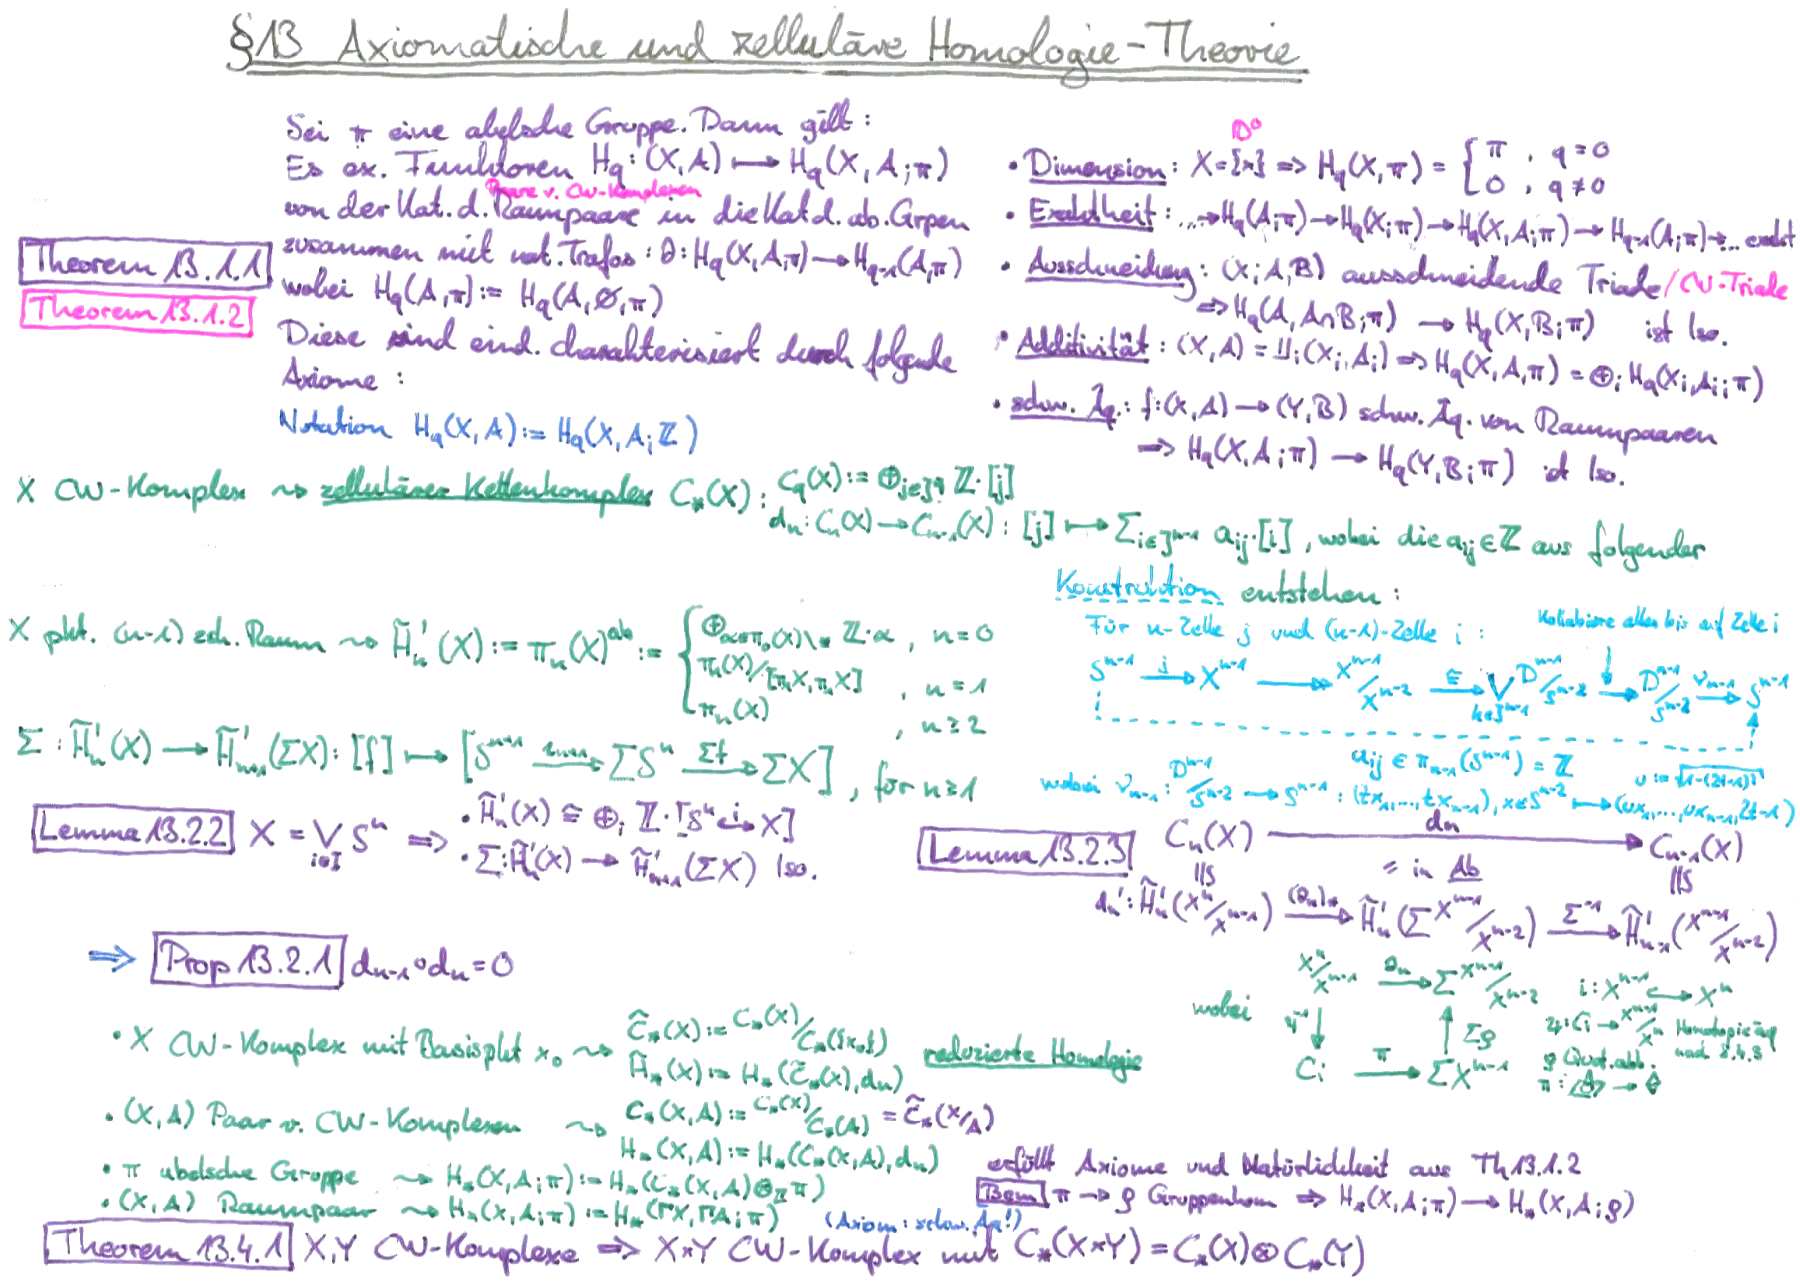 §13 Axiomatische und zelluläre Homologie-Theorie
Sei π eine abelsche Gruppe. Dann gilt:
Es ex. Funktoren H_q: (X,A) ↦ H_q(X,A;π)
Paare v. CW-Komplexen
von der Kat. d. Raumpaare in die Kat. d. ab. Grpen
zusammen mit nat. Trafos: ∂: H_q(X,A;π) → H_{q-1}(A,π)
wobei H_q(A,π) := H_q(A,∅,π)
Theorem 13.1.1
Theorem 13.1.2
Diese sind eind. charakterisiert durch folgende
Axiome:
Notation H_q(X,A) := H_q(X,A;ℤ)
D⁰
• Dimension: X={*} ⇒ H_q(X,π) = { π , q=0
0 , q≠0
• Exaktheit: ... → H_q(A;π) → H_q(X;π) → H_q(X,A;π) → H_{q-1}(A;π) → ... exakt
• Ausschneidung: (X;A,B) ausschneidende Triade/CW-Triade
⇒ H_q(A,A∩B;π) → H_q(X,B;π) ist Iso.
• Additivität: (X,A) = ⨿_i(X_i,A_i) ⇒ H_q(X,A,π) = ⊕_i H_q(X_i,A_i;π)
• schw. Äq.: f:(X,A) → (Y,B) schw. Äq. von Raumpaaren
⇒ H_q(X,A;π) → H_q(Y,B;π) ist Iso.
X CW-Komplex ⇝ zellulärer Kettenkomplex C_*(X): C_q(X) := ⊕_{j∈J^q} ℤ·[j]
d_n: C_n(X) → C_{n-1}(X): [j] ↦ Σ_{i∈J^{n-1}} a_{ij}·[i], wobei die a_{ij}∈ℤ aus folgender
Konstruktion entstehen:
Für n-Zelle j und (n-1)-Zelle i: Kollabiere alles bis auf Zelle i
S^{n-1} →^j X^{n-1} → X^{n-1}/X^{n-2} →^≅ ⋁_{k∈J^{n-1}} D^{n-1}/S^{n-2} → D^{n-1}/S^{n-2} →^{ν_{n-1}} S^{n-1}
a_{ij} ∈ π_{n-1}(S^{n-1}) = ℤ
u := √(1-(2t-1)²)
wobei ν_{n-1}: D^{n-1}/S^{n-2} → S^{n-1}: (tx_1,...,tx_{n-1}), x∈S^{n-2} ↦ (ux_1,...,ux_{n-1},2t-1)
X pkt. (n-1) zsh. Raum ⇝ H̃'_n(X) := π_n(X)^{ab} := { ⊕_{α∈π_0(X)\*} ℤ·α , n=0
π_n(X)/[π_nX,π_nX] , n=1
π_n(X) , n≥2
Σ: H̃'_n(X) → H̃'_{n+1}(ΣX): [f] ↦ [S^{n+1} → ΣS^n →^{Σf} ΣX], für n≥1
Lemma 13.2.2 X = ⋁_{i∈I} S^n ⇒ • H̃'_n(X) ≅ ⊕_i ℤ·[S^n ↪^i X]
• Σ: H̃'_n(X) → H̃'_{n+1}(ΣX) Iso.
Lemma 13.2.3 C_n(X) →^{d_n} C_{n-1}(X)
= in Ab
d'_n: H̃'_n(X^n/X^{n-1}) →^{(∂_n)_*} H̃'_n(ΣX^{n-1}/X^{n-2}) →^{Σ^{-1}} H̃'_{n-1}(X^{n-1}/X^{n-2})
⇒ Prop 13.2.1 d_{n-1}∘d_n=0
wobei X^n/X^{n-1} →^{∂_n} ΣX^{n-1}/X^{n-2} i: X^{n-1} ↪ X^n
ψ^{-1} ↓ ↑ Σρ ψ: Ci → X^{n-1}/X^n Homotopieäq nach 8.4.3
Ci →^π ΣX^{n-1} ρ Quot.abb.
• X CW-Komplex mit Basispkt x_0 ⇝ C̃_*(X) := C_*(X)/C_*({x_0})
H̃_*(X) := H_*(C̃_*(X),d_n) reduzierte Homologie
• (X,A) Paar v. CW-Komplexen ⇝ C_*(X,A) := C_*(X)/C_*(A) = C̃_*(X/A)
H_*(X,A) := H_*(C_*(X,A),d_n)
• π abelsche Gruppe ⇝ H_*(X,A;π) := H_*(C_*(X,A)⊗_ℤ π)
• (X,A) Raumpaar ⇝ H_*(X,A;π) := H_*(ΓX,ΓA;π) (Axiom: schw. Äq!)
erfüllt Axiome und Natürlichkeit aus Th 13.1.2
Bem π → ρ Gruppenhom ⇒ H_*(X,A;π) → H_*(X,A;ρ)
Theorem 13.4.1 X,Y CW-Komplexe ⇒ X×Y CW-Komplex mit C_*(X×Y) = C_*(X)⊗C_*(Y)